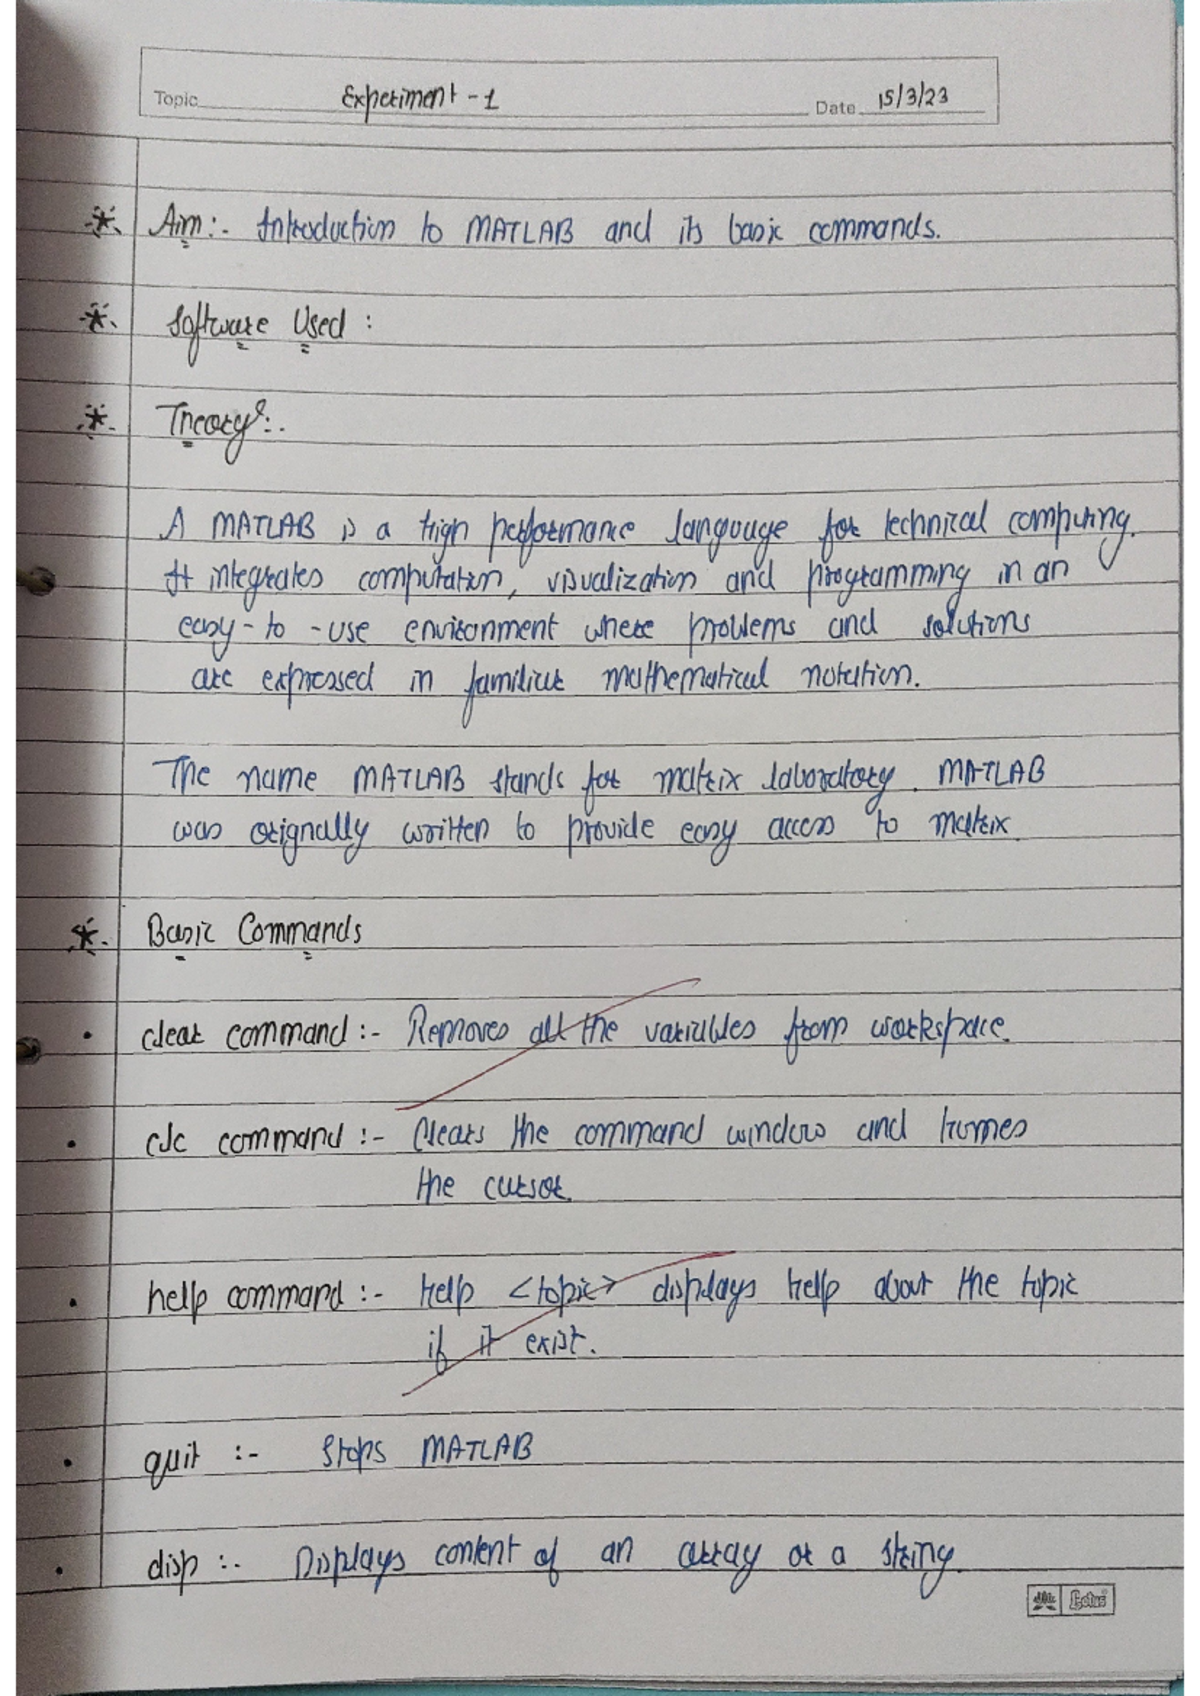 Topic Experiment - 1 Date 15/3/23
Aim :- Introduction to MATLAB and its basic commands.
Software Used :
Theory :-
A MATLAB is a high performance language for technical computing.
It integrates computation, visualization and programming in an
easy - to - use environment where problems and solutions
are expressed in familiar mathematical notation.
The name MATLAB stands for matrix laboratory. MATLAB
was orignally written to provide easy access to matrix
Basic Commands
• clear command :- Removes all the variables from workspace.
• clc command :- Clears the command window and homes
the cursor.
• help command :- help <topic> displays help about the topic
if it exist.
• quit :- Stops MATLAB
• disp :- Displays content of an array or a string.
Lotus